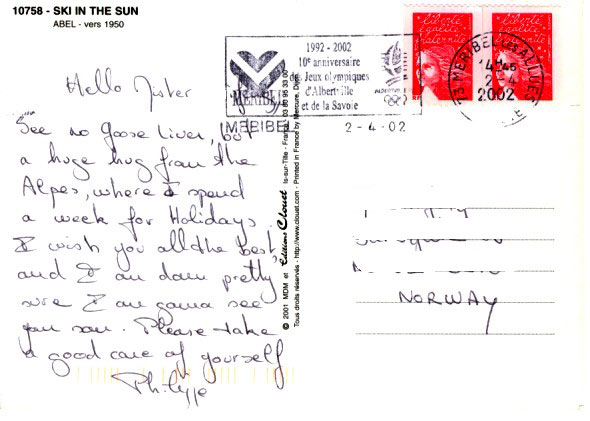 10758 - SKI IN THE SUN
ABEL - vers 1950
liberté
égalité
fraternité
liberté
égalité
fraternité
1992 - 2002
10e anniversaire
des Jeux olympiques
d'Albertville
et de la Savoie
MERIBEL
MERIBEL
2-4-02
73 MERIBEL LES ALLUES
14H45
2-4
2002
Hello Mister
See no goose liver, but
a huge hug from the
Alpes, where I spend
a week for Holidays
I wish you all the best,
and I am damn pretty
sure I am gonna see
you soon. Please take
a good care of yourself
Philippe
© 2001 MDM et Editions Clouet Is-sur-Tille - France
Tous droits réservés - http://www.clouet.com - Printed in France by Mercure, Dijon
NORWAY